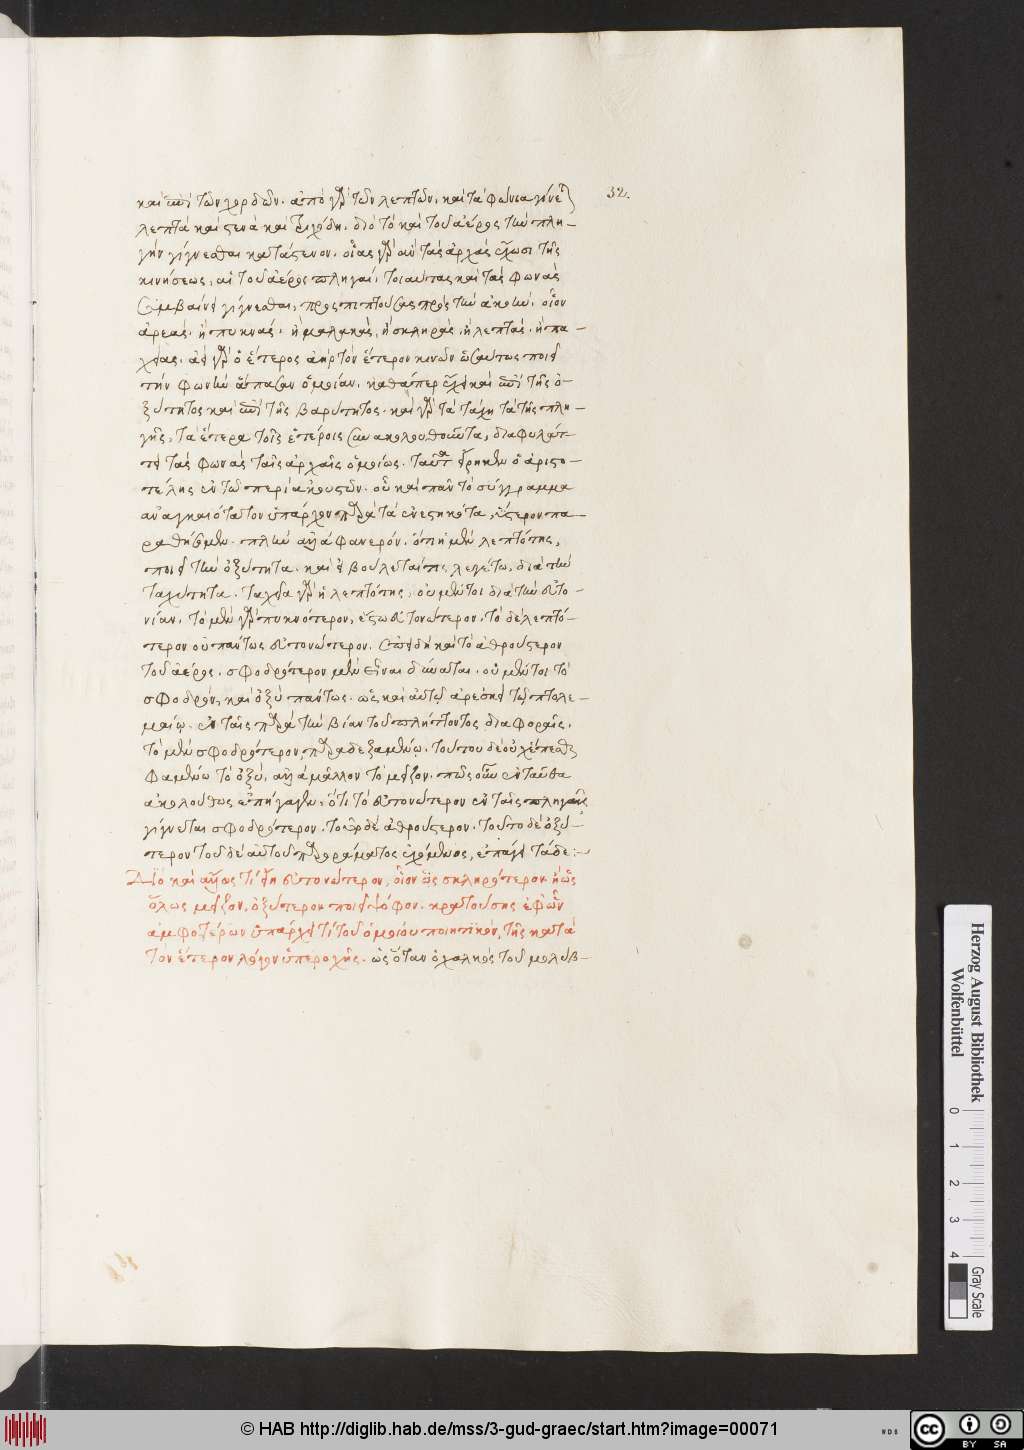 32.
καὶ ἐπὶ τῶν χορδῶν. ἀπὸ γὰρ τῶν λεπτῶν, καὶ τὰ φωνία γίνεται
λεπτὰ καὶ στενὰ καὶ τριχώδη. διὸ τὸ καὶ τοῦ ἀέρος τὴν πλη-
γὴν γίγνεσθαι κατὰ στενόν. οἵας γὰρ ἂν τὰς ἀρχὰς ἔχωσι τῆς
κινήσεως, αἱ τοῦ ἀέρος πληγαί, τοιαύτας καὶ τὰς φωνὰς
συμβαίνει γίγνεσθαι, προσπιπτούσας πρὸς τὴν ἀκοήν. οἷον
ἀρεάς. ἢ πυκνάς. ἢ μαλακάς, ἢ σκληράς, ἢ λεπτάς. ἢ πα-
χείας. ἀεὶ γὰρ ὁ ἕτερος ἀὴρ τὸν ἕτερον κινῶν ὡσαύτως ποιεῖ
τὴν φωνὴν ἅπασαν ὁμοίαν. καθάπερ ἔχει καὶ ἐπὶ τῆς ὀ-
ξύτητος καὶ ἐπὶ τῆς βαρύτητος. καὶ γὰρ τὰ τάχη τὰ τῆς πλη-
γῆς, τὰ ἕτερα τοῖς ἑτέροις συνακολουθοῦντα, διαφυλάτ-
τει τὰς φωνὰς ταῖς ἀρχαῖς ὁμοίως. ταῦτα εἴρηκεν ὁ ἀριστο-
τέλης ἐν τῷ περὶ ἀκουστῶν. οὗ καὶ πᾶν τὸ σύγγραμμα
ἀναγκαιότατον ὑπάρχον παρὰ τὰ ἐνεστηκότα, ὕστερον πα-
ραθήσομεν. πλὴν ἀλλὰ φανερόν. ὅτι ἡ μὲν λεπτότης,
ποιεῖ τὴν ὀξύτητα. καὶ εἰ βούλεταί τις λεγέτω, διὰ τὴν
ταχύτητα. ταχεῖα γὰρ ἡ λεπτότης. οὐ μέντοι διὰ τὴν εὐτο-
νίαν. τὸ μὲν γὰρ πυκνότερον, ἔστω εὐτονώτερον. τὸ δὲ λεπτό-
τερον οὐ πάντως εὐτονώτερον. ἐπειδὴ καὶ τὸ ἀθρούστερον
τοῦ ἀέρος. σφοδρότερον μὲν εἶναι δύναται. οὐ μέντοι τὸ
σφοδρόν, καὶ ὀξὺ πάντως. ὡς καὶ αὐτῷ ἀρέσκει τῷ πτολε-
μαίῳ. ἐν ταῖς παρὰ τὴν βίαν τοῦ πλήττοντος διαφοραῖς.
τὸ μὲν σφοδρότερον παραδεξαμένῳ. τούτου δὲ οὐχ ἕπεσθαι
φαμένῳ τὸ ὀξύ, ἀλλὰ μᾶλλον τὸ μεῖζον. πῶς οὖν ἐνταῦθα
ἀκολούθως ἐπήγαγεν. ὅτι τὸ εὐτονώτερον ἐν ταῖς πληγαῖς
γίγνεται σφοδρότερον. τοῦτο δὲ ἀθρούστερον. τοῦτο δὲ ὀξύ-
τερον τοῦ δὲ αὐτοῦ παροράματος ἐχόμενος, ἐπάγει τάδε:-
Διὸ καὶ ἄλλως τί εἴη εὐτονώτερον, οἷον ὡς σκληρότερον ἢ ὡς
ὅλως μεῖζον, ὀξύτερον ποιεῖ ψόφον. κρατούσης ἐφ' ὧν
ἀμφοτέρων ὑπάρχει τί τοῦ ὁμοίου ποιητικόν, τῆς κατὰ
τὸν ἕτερον λόγον ὑπεροχῆς. ὡς ὅταν ὁ χαλκὸς τοῦ μολύβ-
Herzog August Bibliothek
Wolfenbüttel
0 1 2 3 4
Gray Scale
© HAB http://diglib.hab.de/mss/3-gud-graec/start.htm?image=00071
cc BY SA